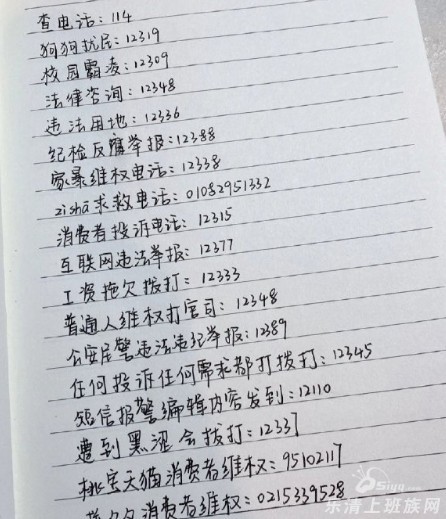 查电话：114
狗狗扰民：12319
校园霸凌：12309
法律咨询：12348
违法用地：12336
纪检反腐举报：12388
家暴维权电话：12338
zisha求救电话：01082951332
消费者投诉电话：12315
互联网违法举报：12377
工资拖欠拨打：12333
普通人维权打官司：12348
公安民警违法违纪举报：12389
任何投诉任何需求都打拨打：12345
短信报警编辑内容发到：12110
遭到黑涩会拨打：12337
桃宝天猫消费者维权：95102117
消费者维权：0215339528
乐清上班族网